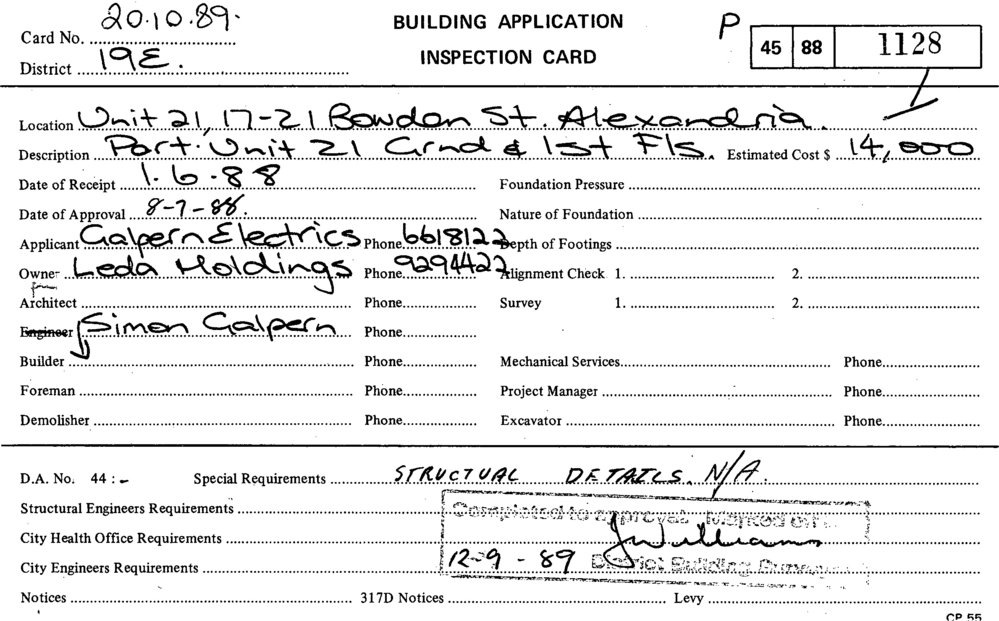 20.10.89.
BUILDING APPLICATION
P
Card No.
45 88 1128
INSPECTION CARD
District 19E.
Location Unit 21, 17-21 Bowden St. Alexandria.
Description Part. Unit 21 Grnd & 1st Fls. Estimated Cost $ 14,000
Date of Receipt 1.6.88 Foundation Pressure
Date of Approval 8-7-88. Nature of Foundation
Applicant Galpern Electrics Phone 6618122 Depth of Footings
Owner Leda Holdings Phone 9294422 Alignment Check 1. 2.
Architect Phone Survey 1. 2.
Engineer Simon Galpern Phone
Builder Phone Mechanical Services Phone
Foreman Phone Project Manager Phone
Demolisher Phone Excavator Phone
D.A. No. 44 : - Special Requirements STRUCTUAL DETAILS. N/A.
Structural Engineers Requirements Completed to approval. Marked off
City Health Office Requirements JWilliams
City Engineers Requirements 12-9-89 District Building Surveyor
Notices 317D Notices Levy
CP 55